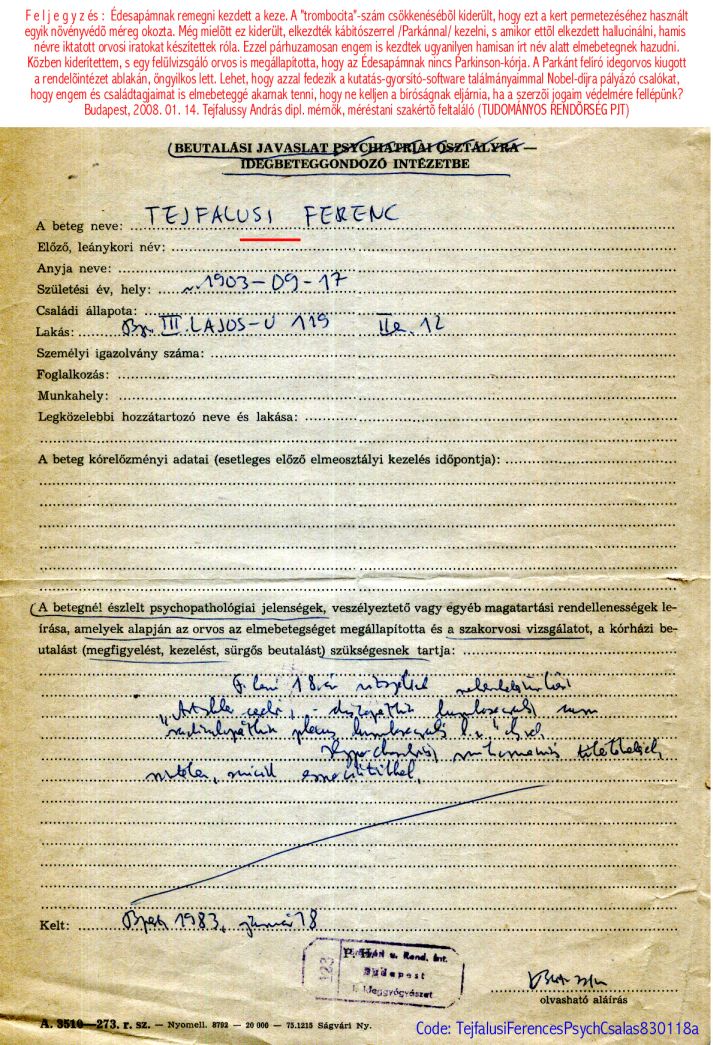 F e l j e g y z é s : Édesapámnak remegni kezdett a keze. A "trombocita"-szám csőkkenéséből kiderült, hogy ezt a kert permetezéséhez használt
egyik nővényvédő méreg okozta. Még mielőtt ez kiderült, elkezdték kábítószerrel /Parkánnal/ kezelni, s amikor ettől elkezdett hallucinálni, hamis
névre iktatott orvosi iratokat készítettek róla. Ezzel párhuzamosan engem is kezdtek ugyanilyen hamisan irt név alatt elmebetegnek hazudni.
Közben kiderítettem, s egy felülvizsgáló orvos is megállapította, hogy az Édesapámnak nincs Parkinson-kórja. A Parkánt felíró idegorvos kiugott
a rendelőintézet ablakán, öngyilkos lett. Lehet, hogy azzal fedezik a kutatás-gyorsító-software találmányaimmal Nobel-díjra pályázó csalókat,
hogy engem és családtagjaimat is elmebeteggé akarnak tenni, hogy ne kelljen a bíróságnak eljárnia, ha a szerzői jogaim védelmére fellépünk?
Budapest, 2008. 01. 14. Tejfalussy András dipl. mérnök, méréstani szakértő feltaláló (TUDOMÁNYOS RENDŐRSÉG PJT)
(BEUTALÁSI JAVASLAT PSYCHIATRIAI OSZTÁLYRA —
IDEGBETEGGONDOZÓ INTÉZETBE
A beteg neve: TEJFALUSI FERENC
Előző, leánykori név:
Anyja neve:
Születési év, hely: 1903-09-17
Családi állapota:
Lakás: Bp. III. LAJOS-U 119 II e. 12
Személyi igazolvány száma:
Foglalkozás:
Munkahely:
Legközelebbi hozzátartozó neve és lakása:
A beteg kórelőzményi adatai (esetleges előző elmeosztályi kezelés időpontja):
(A betegnél észlelt psychopathológiai jelenségek, veszélyeztető vagy egyéb magatartási rendellenességek le-
írása, amelyek alapján az orvos az elmebetegséget megállapította és a szakorvosi vizsgálatot, a kórházi be-
utalást (megfigyelést, kezelést, sürgős beutalást) szükségesnek tartja:
18.
Kelt: Bpest 1983. január 18
u. Rend. Int.
Budapest
Ideggyógyászat
123
olvasható aláírás
A. 3510—273. r. sz. — Nyomell. 8792 — 20 000 — 75.1215 Ságvári Ny.
Code: TejfalusiFerencesPsychCsalas830118a